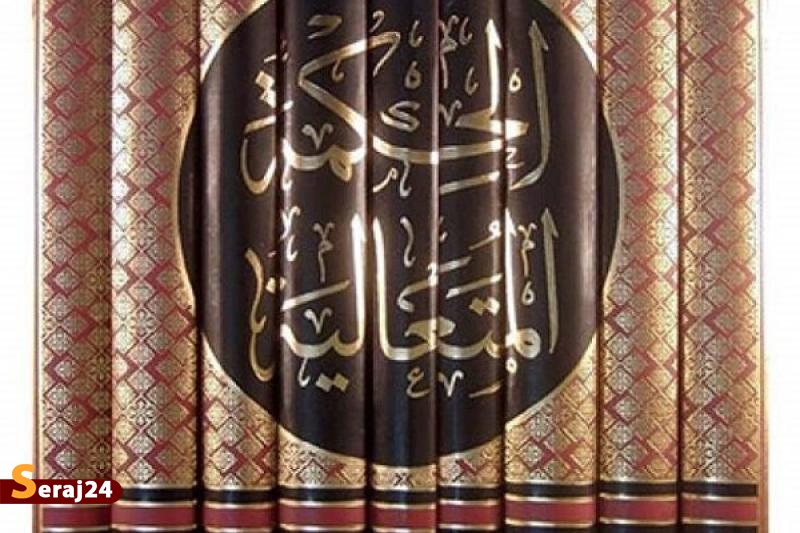 الحكمة
المتعالية
Seraj24